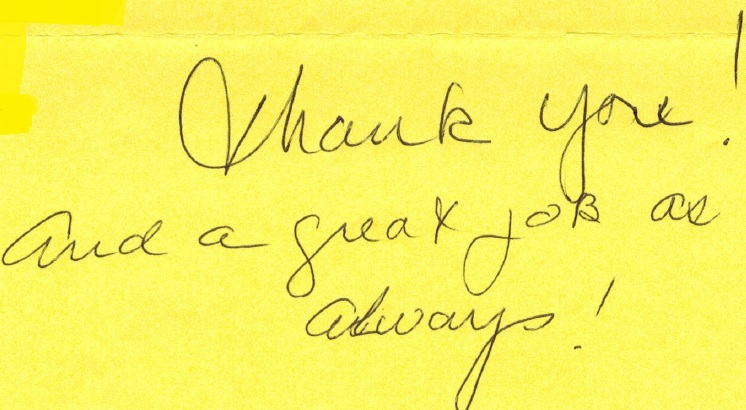 Thank you!
And a great job as
always!